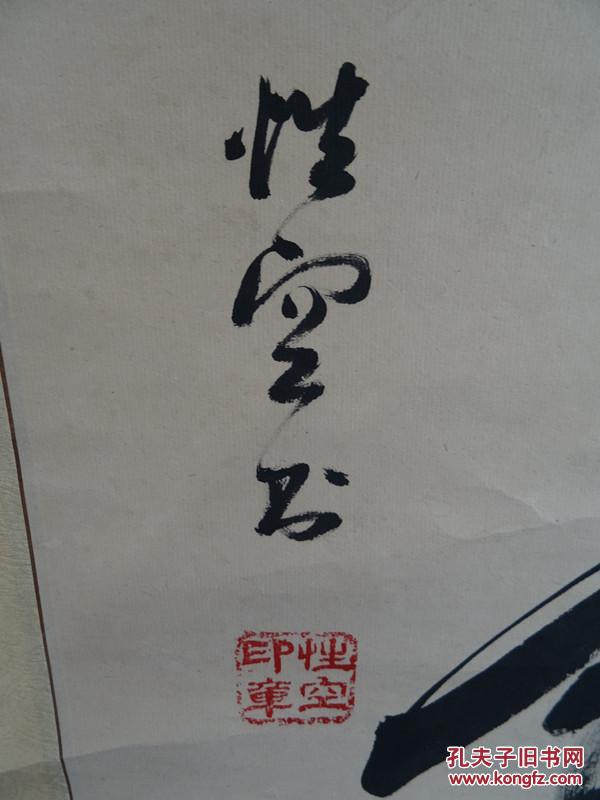 性空书
性空
印章
孔夫子旧书网
www.kongfz.com